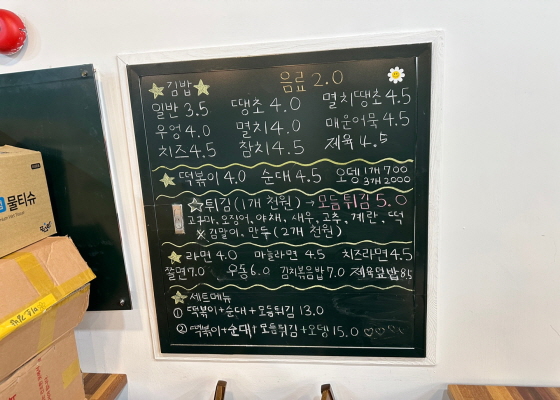 김밥 음료 2.0
일반 3.5 땡초 4.0 멸치땡초 4.5
우엉 4.0 멸치 4.0 매운어묵 4.5
치즈 4.5 참치 4.5 제육 4.5
떡볶이 4.0 순대 4.5 오뎅 1개 700
3개 2000
튀김 (1개 천원) → 모듬튀김 5.0
고구마, 오징어, 야채, 새우, 고추, 계란, 떡
X 김말이. 만두 (2개 천원)
라면 4.0 마늘라면 4.5 치즈라면 4.5
쫄면 7.0 우동 6.0 김치볶음밥 7.0 제육덮밥 8.5
세트메뉴
① 떡볶이+순대+모듬튀김 13.0
② 떡볶이+순대+모듬튀김+오뎅 15.0
물티슈